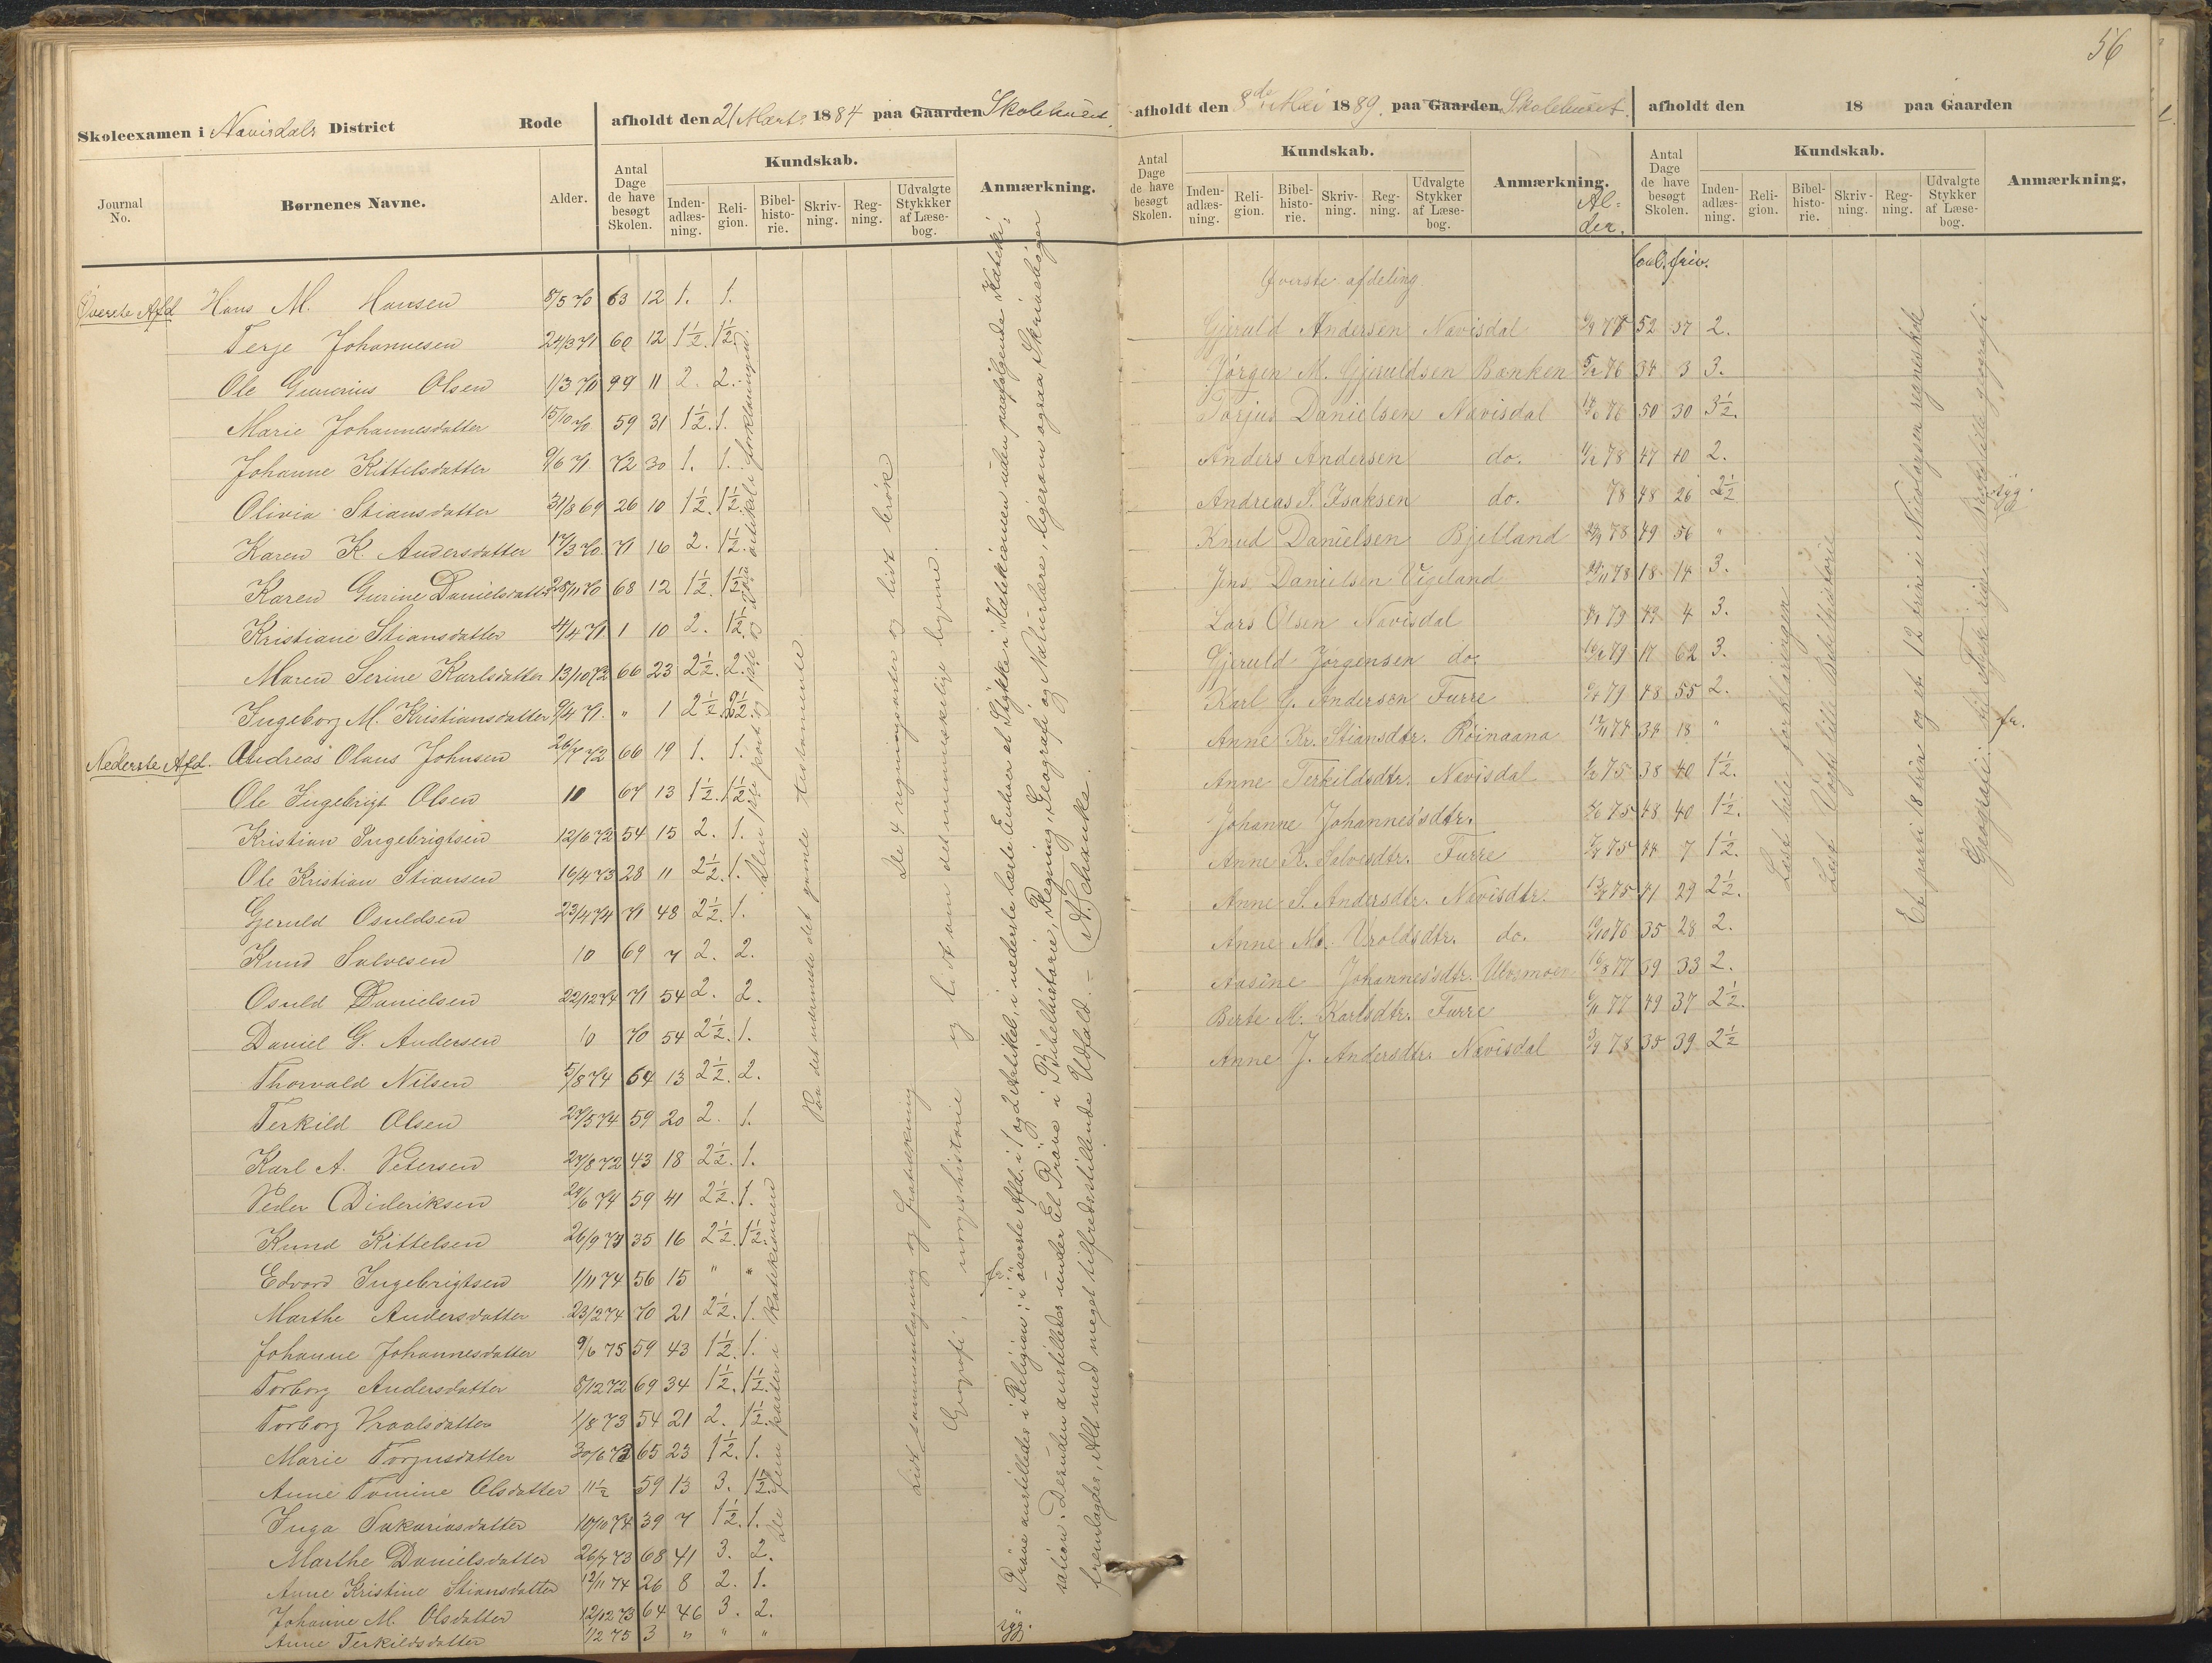 56
Skoleexamen i Navisdals District Rode afholdt den 21 Marts 1884 paa Gaarden Skolehuset.
Journal No. Børnenes Navne. Alder. Antal Dage de have besøgt Skolen. Kundskab. Inden-adlæs-ning. Reli-gion. Bibel-histo-rie. Skriv-ning. Reg-ning. Udvalgte Stykkker af Læse-bog. Anmærkning.
Øverste Afd. Hans M. Hansen 8/5 70 63 12 1. 1.
Terje Johannesen 24/3 71 60 12 1½. 1½.
Ole Gunerius Olsen 1/3 70 99 11 2. 2.
Marie Johannesdatter 15/10 70 59 31 1½. 1.
Johanne Kittelsdatter 9/6 71 72 30 1. 1.
Olivia Stiansdatter 31/8 69 26 10 1½. 1½.
Karen K. Andersdatter 17/3 70. 71 16 2. 1½.
Karen Gurine Danielsdatter 28/11 70 68 12 1½. 1½.
Kristiane Stiansdatter 4/4 71 1 10 2. 1½.
Maren Serine Karlsdatter 13/10 72 66 23 2½. 2.
Ingeborg M. Kristiansdatter 9/4 71. " 1 2½. 2½.
Nederste Afd. Andreas Olaus Johnsen 26/7 72 66 19 1. 1.
Ole Ingebrigt Olsen 11 67 13 1½. 1½.
Kristian Ingebrigtsen 12/6 72 54 15 2. 1.
Ole Kristian Stiansen 16/4 73 28 11 2½. 1.
Gjeruld Osuldsen 23/4 74 71 48 2½. 1.
Knud Salvesen 10 69 7 2. 2.
Osuld Danielsen 22/12 74 71 54 2. 2.
Daniel G. Andersen 10 70 54 2½. 1.
Thorvald Nilsen 5/8 74 64 13 2½. 2.
Terkild Olsen 27/5 74 59 20 2. 1.
Karl A. Petersen 27/8 72 43 18 2½. 1.
Peder Dideriksen 29/6 74 59 41 2½. 1.
Knud Kittelsen 26/9 73 35 16 2½. 1½.
Edvard Ingebrigtsen 1/11 74 56 15 " "
Marthe Andersdatter 23/2 74 70 21 2½. 1.
Johanne Johannesdatter 9/6 75 59 43 1½. 1.
Torborg Andersdatter 8/12 72 69 34 1½. 1½.
Torborg Vraalsdatter 1/8 73 54 21 2. 1½.
Marie Torjusdatter 30/6 73 65 23 1½. 1.
Anne Tomine Olsdatter 11½ 59 13 3. 1½.
Inga Sakariasdatter 10/10 74 39 7 1½. 1.
Marthe Danielsdatter 26/7 73 68 41 3. 2.
Anne Kristine Stiansdatter 12/11 74 26 8 2. 1.
Johanne M. Olsdatter 12/12 73 64 46 3. 2.
Anne Terkildsdatter 1/2 75 3 " " "
De fem parter i Katekismen
Paa det nærmeste det gamle testamente
De 4 regningsarter og lidt brøk
Lidt sammenlægning og fratrækning
Geografi, norgeshistorie og lidt om det menneskelige legeme.
Prøve anstilledes i Religion: i øverste Afd. i 1 og 2 Artikel, i nederste læste Enhver et Stykke i Katekismen uden paafølgende Kateki-
sation. Desuden anstilledes under Et Prøve i Bibelhistorie, Regning, Geografi og Naturlære, ligesom ogsaa Skrivebøger
fremlagdes, Alt med meget tilfredsstillende Udfald. — A. Schanke.
syg.
afholdt den 8de Mai 1889. paa Gaarden Skolehuset.
Antal Dage de have besøgt Skolen. Kundskab. Inden-adlæs-ning. Reli-gion. Bibel-histo-rie. Skriv-ning. Reg-ning. Udvalgte Stykker af Læse-bog. Anmærkning. Al-der.
afholdt den 18 paa Gaarden
Antal Dage de have besøgt Skolen. Kundskab. Inden-adlæs-ning. Reli-gion. Bibel-histo-rie. Skriv-ning. Reg-ning. Udvalgte Stykker af Læse-bog. Anmærkning.
Øverste afdeling
Gjeruld Andersen Navisdal 52 37 2.
Jørgen M. Gjeruldsen Banken 5/2 76 34 3 3.
Torjus Danielsen Navisdal 76 50 30 3½.
Anders Andersen do. 78 47 40 2.
Andreas S. Isaksen do. 78 48 26 2½
Knud Danielsen Bjelland 78 49 56 "
Jens Danielsen Vegeland 78 18 14 3.
Lars Olsen Navisdal 79 49 4 3.
Gjeruld Jørgensen do. 79 17 62 3.
Karl G. Andersen Furre 79 48 55 2.
Anne Kr. Stiansdtr. Røinaana 74 34 18 "
Anne Terkildsdtr. Navisdal 1/2 75 38 40 1½.
Johanne Johannes'sdtr. 9/6 75 48 40 1½.
Anne K. Salvesdtr. Furre 75 44 7 1½.
Anne S. Andersdtr. Navisdtr. 75 41 29 2½.
Anne M. Vroldsdtr. do. 76 35 28 2.
Aasine Johannes'sdtr. 77 39 33 2.
Berte M. Karlsdtr. Furre 77 49 37 2½.
Anne J. Andersdtr. Navisdal 78 35 39 2½
Læst hele forklaringen
Læst Vogts lille Bibelhistorie
Et parti 18 tiin og et 12 tiin i Nicolaysen regneskole
syg.
fr.